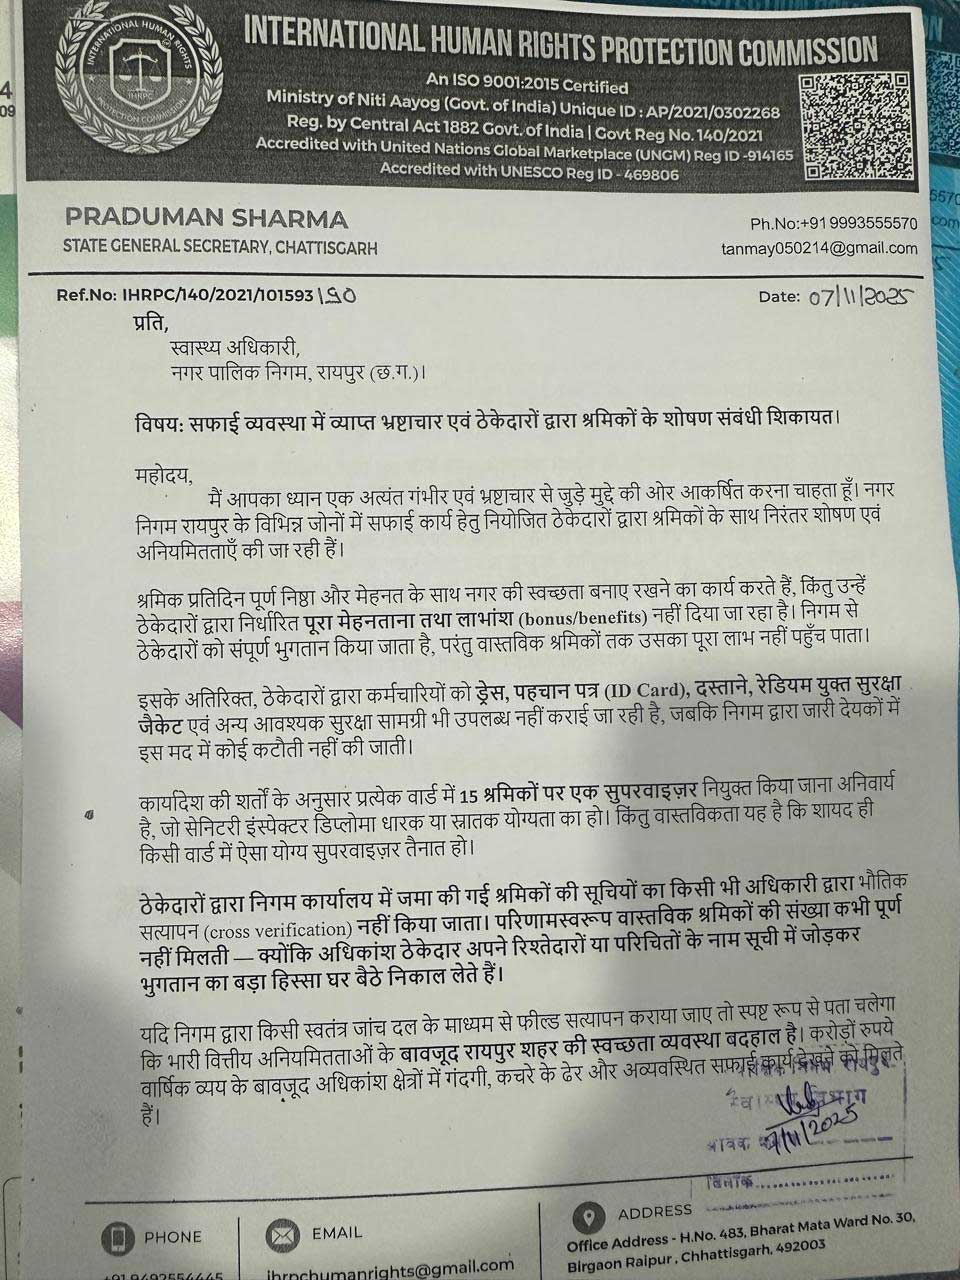 INTERNATIONAL HUMAN RIGHTS
IHRPC
PROTECTION COMMISSION
INTERNATIONAL HUMAN RIGHTS PROTECTION COMMISSION
An ISO 9001:2015 Certified
Ministry of Niti Aayog (Govt. of India) Unique ID : AP/2021/0302268
Reg. by Central Act 1882 Govt. of India | Govt Reg No. 140/2021
Accredited with United Nations Global Marketplace (UNGM) Reg ID -914165
Accredited with UNESCO Reg ID - 469806
PRADUMAN SHARMA
STATE GENERAL SECRETARY, CHATTISGARH
Ph.No:+91 9993555570
tanmay050214@gmail.com
Ref.No: IHRPC/140/2021/101593/190
Date: 07/11/2025
प्रति,
स्वास्थ्य अधिकारी,
नगर पालिक निगम, रायपुर (छ.ग.)।
विषय: सफाई व्यवस्था में व्याप्त भ्रष्टाचार एवं ठेकेदारों द्वारा श्रमिकों के शोषण संबंधी शिकायत।
महोदय,
मैं आपका ध्यान एक अत्यंत गंभीर एवं भ्रष्टाचार से जुड़े मुद्दे की ओर आकर्षित करना चाहता हूँ। नगर
निगम रायपुर के विभिन्न जोनों में सफाई कार्य हेतु नियोजित ठेकेदारों द्वारा श्रमिकों के साथ निरंतर शोषण एवं
अनियमितताएँ की जा रही हैं।
श्रमिक प्रतिदिन पूर्ण निष्ठा और मेहनत के साथ नगर की स्वच्छता बनाए रखने का कार्य करते हैं, किंतु उन्हें
ठेकेदारों द्वारा निर्धारित पूरा मेहनताना तथा लाभांश (bonus/benefits) नहीं दिया जा रहा है। निगम से
ठेकेदारों को संपूर्ण भुगतान किया जाता है, परंतु वास्तविक श्रमिकों तक उसका पूरा लाभ नहीं पहुँच पाता।
इसके अतिरिक्त, ठेकेदारों द्वारा कर्मचारियों को ड्रेस, पहचान पत्र (ID Card), दस्ताने, रेडियम युक्त सुरक्षा
जैकेट एवं अन्य आवश्यक सुरक्षा सामग्री भी उपलब्ध नहीं कराई जा रही है, जबकि निगम द्वारा जारी देयकों में
इस मद में कोई कटौती नहीं की जाती।
कार्यादेश की शर्तों के अनुसार प्रत्येक वार्ड में 15 श्रमिकों पर एक सुपरवाइज़र नियुक्त किया जाना अनिवार्य
है, जो सेनिटरी इंस्पेक्टर डिप्लोमा धारक या स्नातक योग्यता का हो। किंतु वास्तविकता यह है कि शायद ही
किसी वार्ड में ऐसा योग्य सुपरवाइज़र तैनात हो।
ठेकेदारों द्वारा निगम कार्यालय में जमा की गई श्रमिकों की सूचियों का किसी भी अधिकारी द्वारा भौतिक
सत्यापन (cross verification) नहीं किया जाता। परिणामस्वरूप वास्तविक श्रमिकों की संख्या कभी पूर्ण
नहीं मिलती — क्योंकि अधिकांश ठेकेदार अपने रिश्तेदारों या परिचितों के नाम सूची में जोड़कर
भुगतान का बड़ा हिस्सा घर बैठे निकाल लेते हैं।
यदि निगम द्वारा किसी स्वतंत्र जांच दल के माध्यम से फील्ड सत्यापन कराया जाए तो स्पष्ट रूप से पता चलेगा
कि भारी वित्तीय अनियमितताओं के बावजूद रायपुर शहर की स्वच्छता व्यवस्था बदहाल है। करोड़ों रुपये
वार्षिक व्यय के बावजूद अधिकांश क्षेत्रों में गंदगी, कचरे के ढेर और अव्यवस्थित सफाई कार्य देखने को मिलते
हैं।
रायपुर
आवक
7/11/2025
दिनांक
PHONE
EMAIL
ihrpchumanrights@gmail.com
ADDRESS
Office Address - H.No. 483, Bharat Mata Ward No. 30,
Birgaon Raipur, Chhattisgarh, 492003